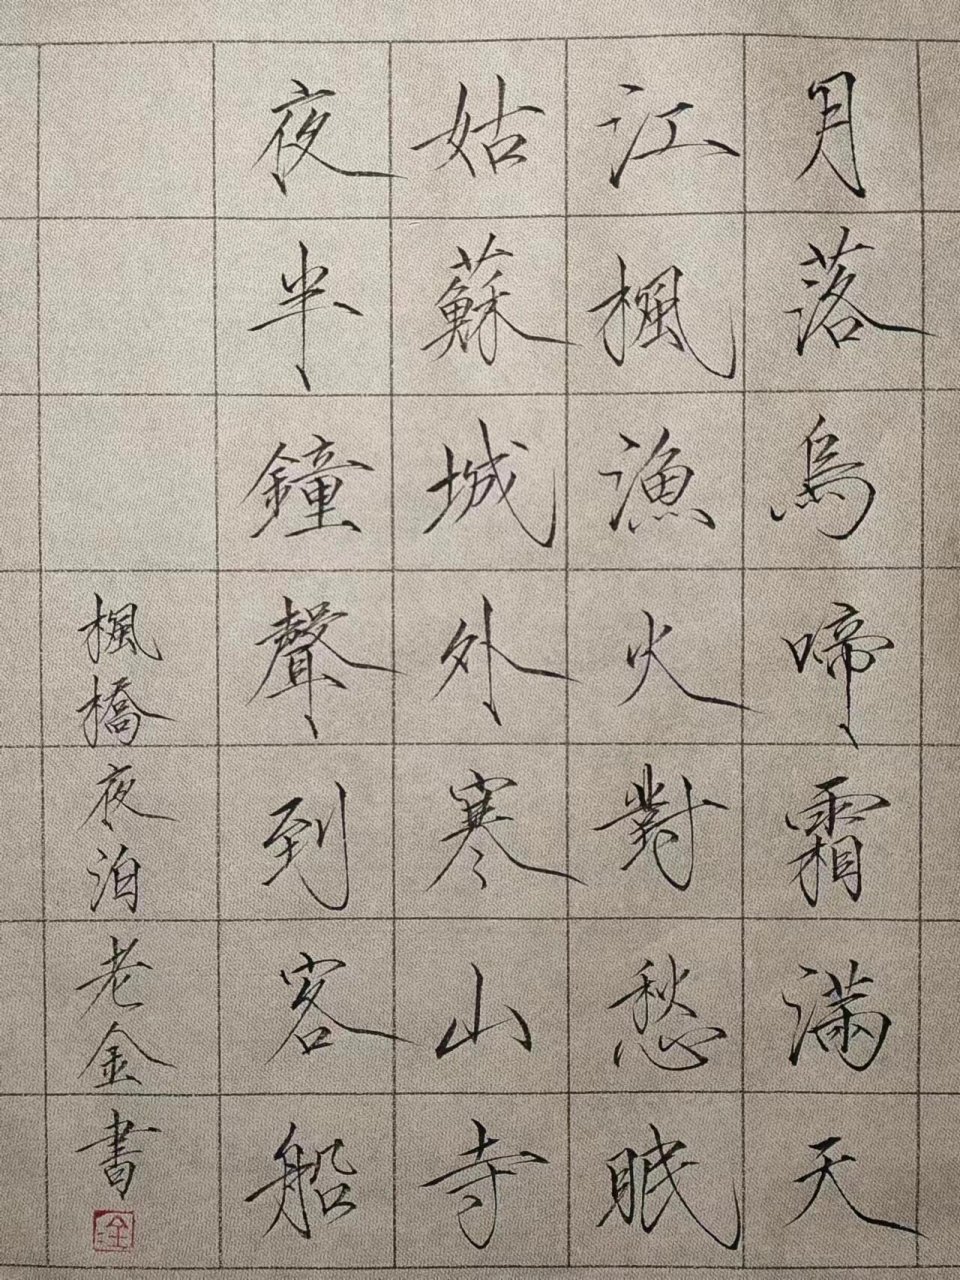 月落烏啼霜滿天
江楓漁火對愁眠
姑蘇城外寒山寺
夜半鐘聲到客船
楓橋夜泊老金書